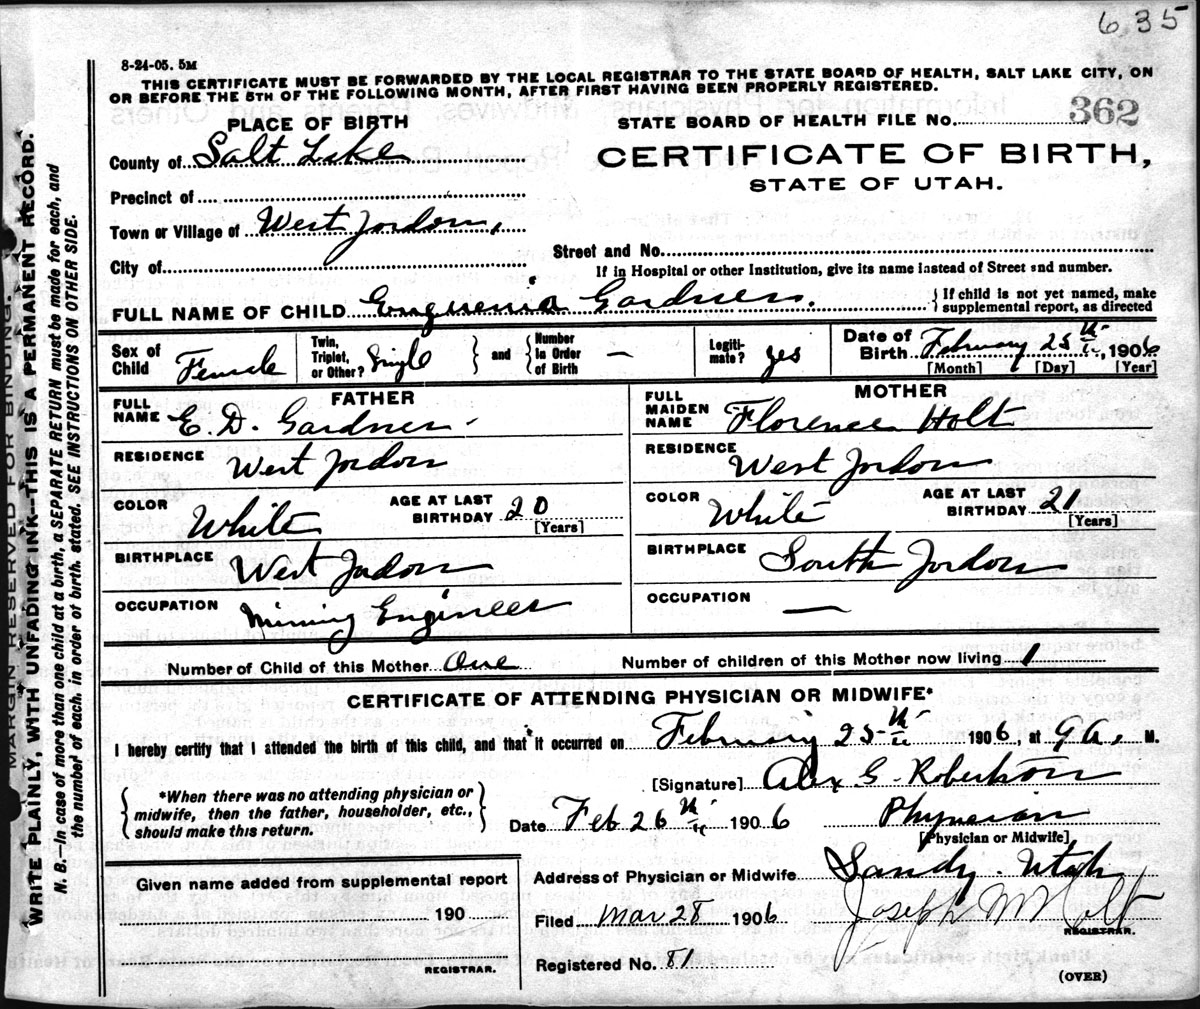 635
8-24-05. 5M
THIS CERTIFICATE MUST BE FORWARDED BY THE LOCAL REGISTRAR TO THE STATE BOARD OF HEALTH, SALT LAKE CITY, ON
OR BEFORE THE 5TH OF THE FOLLOWING MONTH, AFTER FIRST HAVING BEEN PROPERLY REGISTERED.
PLACE OF BIRTH
STATE BOARD OF HEALTH FILE NO. 362
County of Salt Lake
CERTIFICATE OF BIRTH,
STATE OF UTAH.
Precinct of
Town or Village of West Jordon,
Street and No.
City of
If in Hospital or other Institution, give its name instead of Street and number.
FULL NAME OF CHILD Enguenia Gardner. { If child is not yet named, make
supplemental report, as directed
Sex of Child Female
Twin, Triplet, or Other? Single } and { Number in Order of Birth —
Legiti-mate? yes
Date of Birth February 25th, 1906
[Month] [Day] [Year]
FATHER
FULL NAME E. D. Gardner
RESIDENCE West Jordon
COLOR White AGE AT LAST BIRTHDAY 20
[Years]
BIRTHPLACE West Jadon
OCCUPATION Mining Engineer
MOTHER
FULL MAIDEN NAME Florence Holt
RESIDENCE West Jordon
COLOR White AGE AT LAST BIRTHDAY 21
[Years]
BIRTHPLACE South Jordon
OCCUPATION —
Number of Child of this Mother One Number of children of this Mother now living 1
CERTIFICATE OF ATTENDING PHYSICIAN OR MIDWIFE*
I hereby certify that I attended the birth of this child, and that it occurred on February 25th 1906, at 9 a. M.
[Signature] Alex G. Robertson
{ *When there was no attending physician or
midwife, then the father, householder, etc.,
should make this return. }
Date Feb 26th 1906 Physician
[Physician or Midwife]
Given name added from supplemental report
190
REGISTRAR.
Address of Physician or Midwife Sandy. Utah
Filed Mar 28 1906 Joseph M Holt
REGISTRAR.
Registered No. 81
(OVER)
MARGIN RESERVED FOR BINDING.
WRITE PLAINLY, WITH UNFADING INK—THIS IS A PERMANENT RECORD.
N. B.—In case of more than one child at a birth, a SEPARATE RETURN must be made for each, and
the number of each, in order of birth, stated. SEE INSTRUCTIONS ON OTHER SIDE.